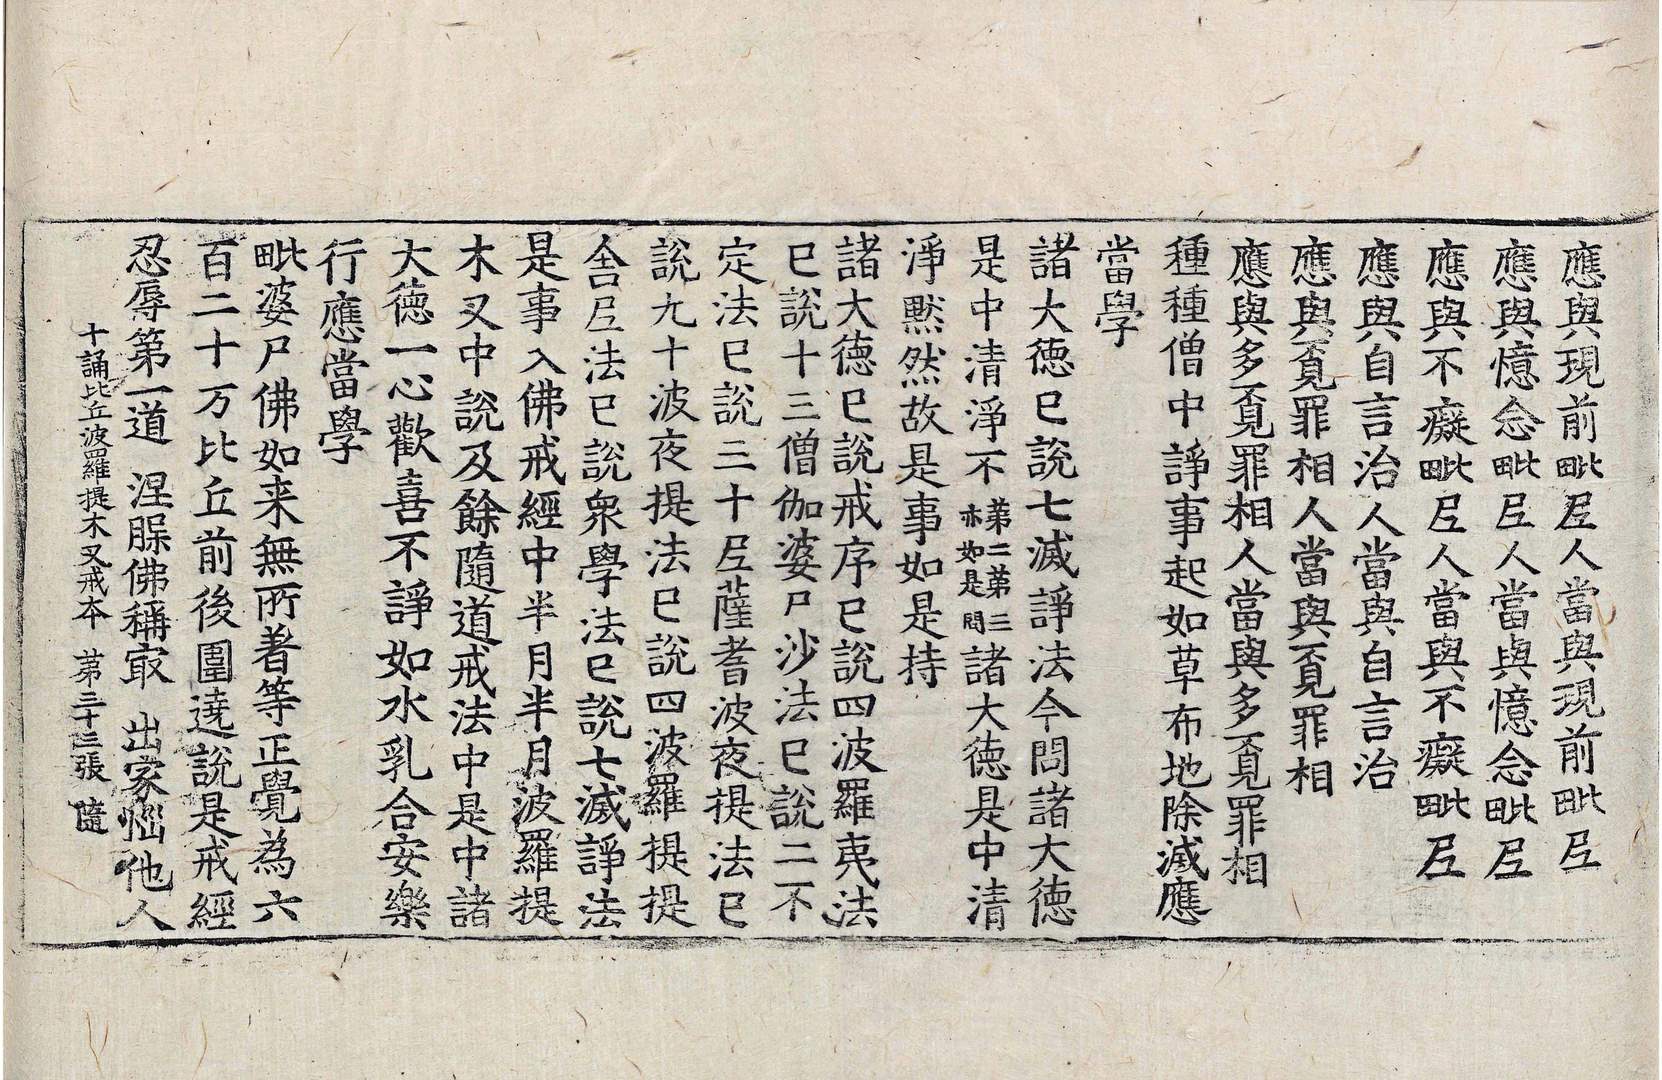 應與現前毗尼人當與現前毗尼
應與憶念毗尼人當與憶念毗尼
應與不癡毗尼人當與不癡毗尼
應與自言治人當與自言治
應與覓罪相人當與覓罪相
應與多覓罪相人當與多覓罪相
種種僧中諍事起如草布地除滅應
當學
諸大德已說七滅諍法今問諸大德
是中清淨不第二第三亦如是問諸大德是中清
淨默然故是事如是持
諸大德已說戒序已說四波羅夷法
已說十三僧伽婆尸沙法已說二不
定法已說三十尼薩耆波夜提法已
說九十波夜提法已說四波羅提提
舍尼法已說衆學法已說七滅諍法
是事入佛戒經中半月半月波羅提
木叉中說及餘隨道戒法中是中諸
大德一心歡喜不諍如水乳合安樂
行應當學
毗婆尸佛如来無所著等正覺為六
百二十万比丘前後圍遶說是戒經
忍辱第一道 涅槃佛稱㝡 出家惱他人
十誦比丘波羅提木叉戒本 第三十三張 隨